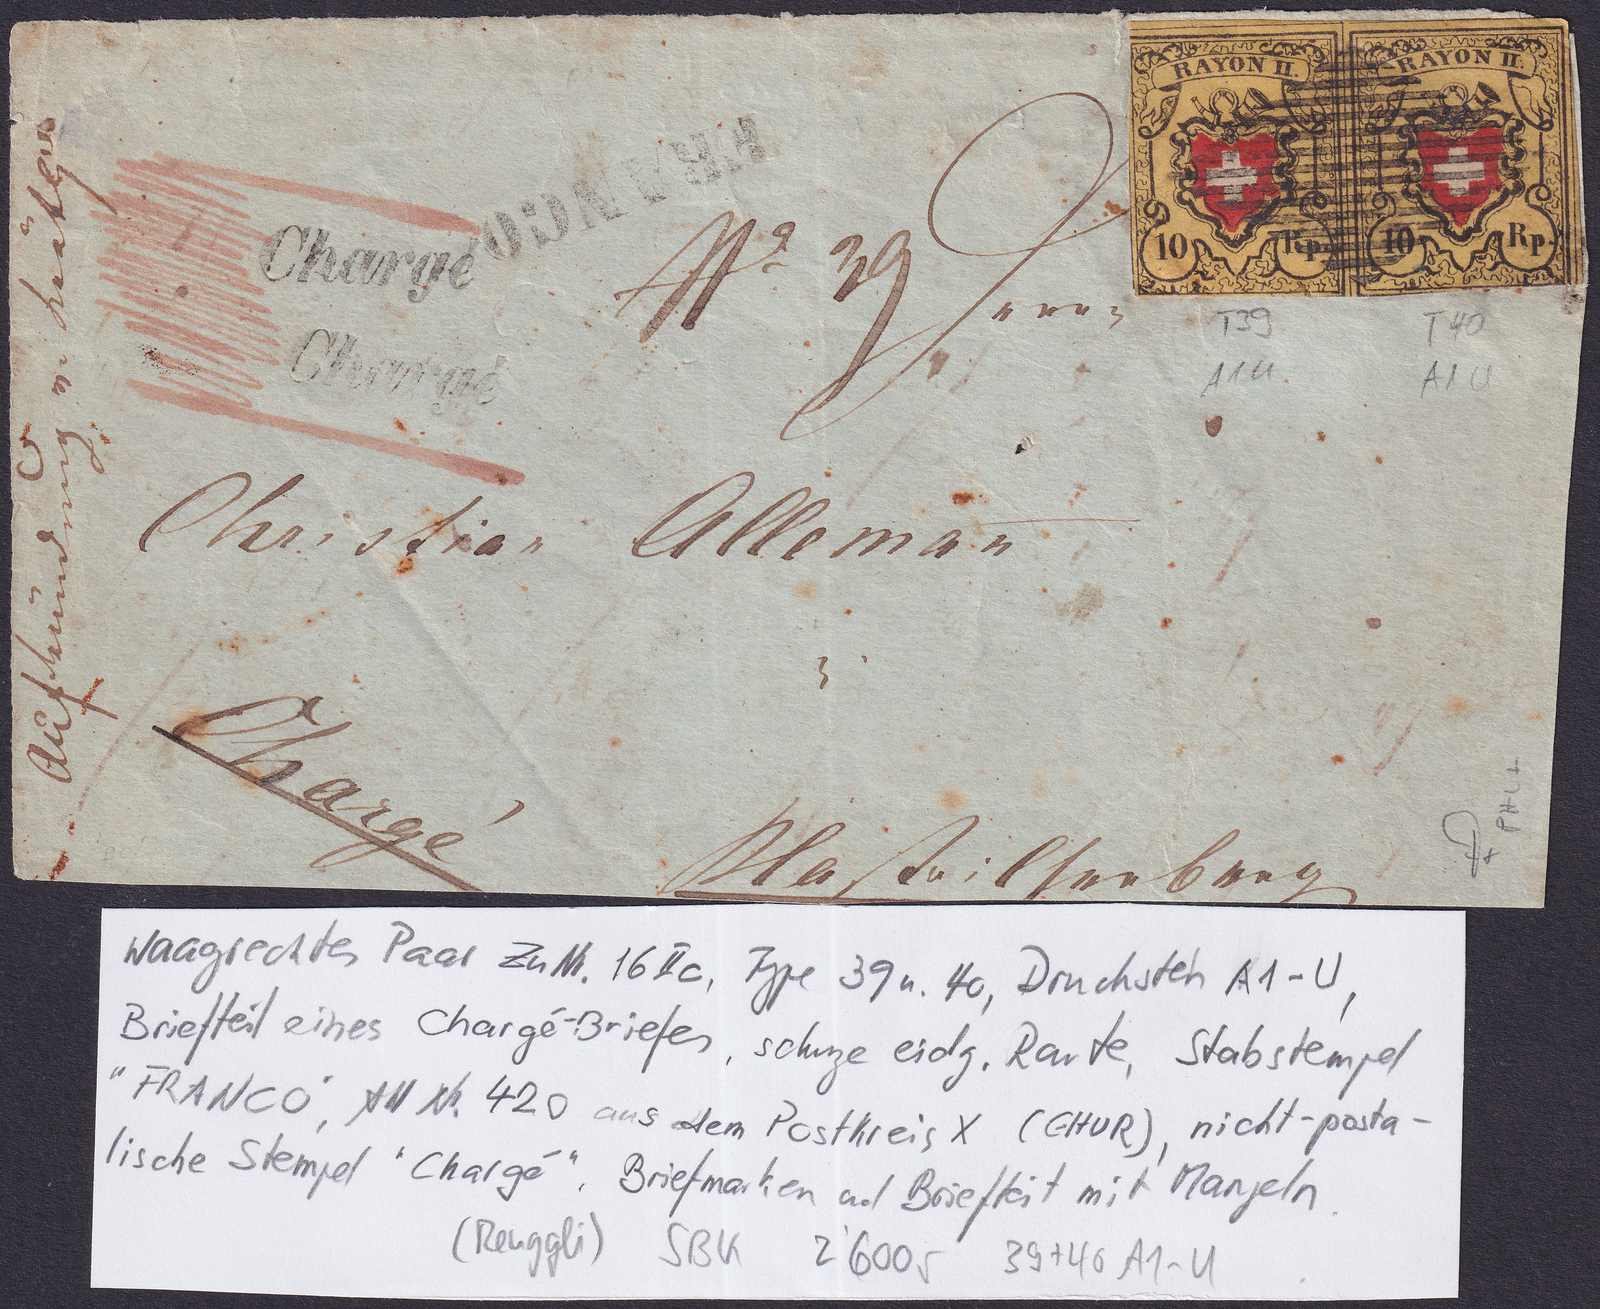 RAYON II. RAYON II.
10 Rp. 10 Rp.
FRANCO
Chargé
Chargé
Nº 39
T39 T40
A1U A1U
Christian Alleman
Chargé
Waagrechtes Paar Zu Nr. 16 II c, Type 39 u. 40, Druckstein A1-U,
Briefteil eines Chargé-Briefes, schwze eidg. Raute, Stabstempel
"FRANCO", AW Nr. 420 aus dem Postkreis X (CHUR), nicht-posta-
lische Stempel "Chargé". Briefmarken und Briefteil mit Mängeln.
(Renggli) SBK 2'600 39+40 A1-U